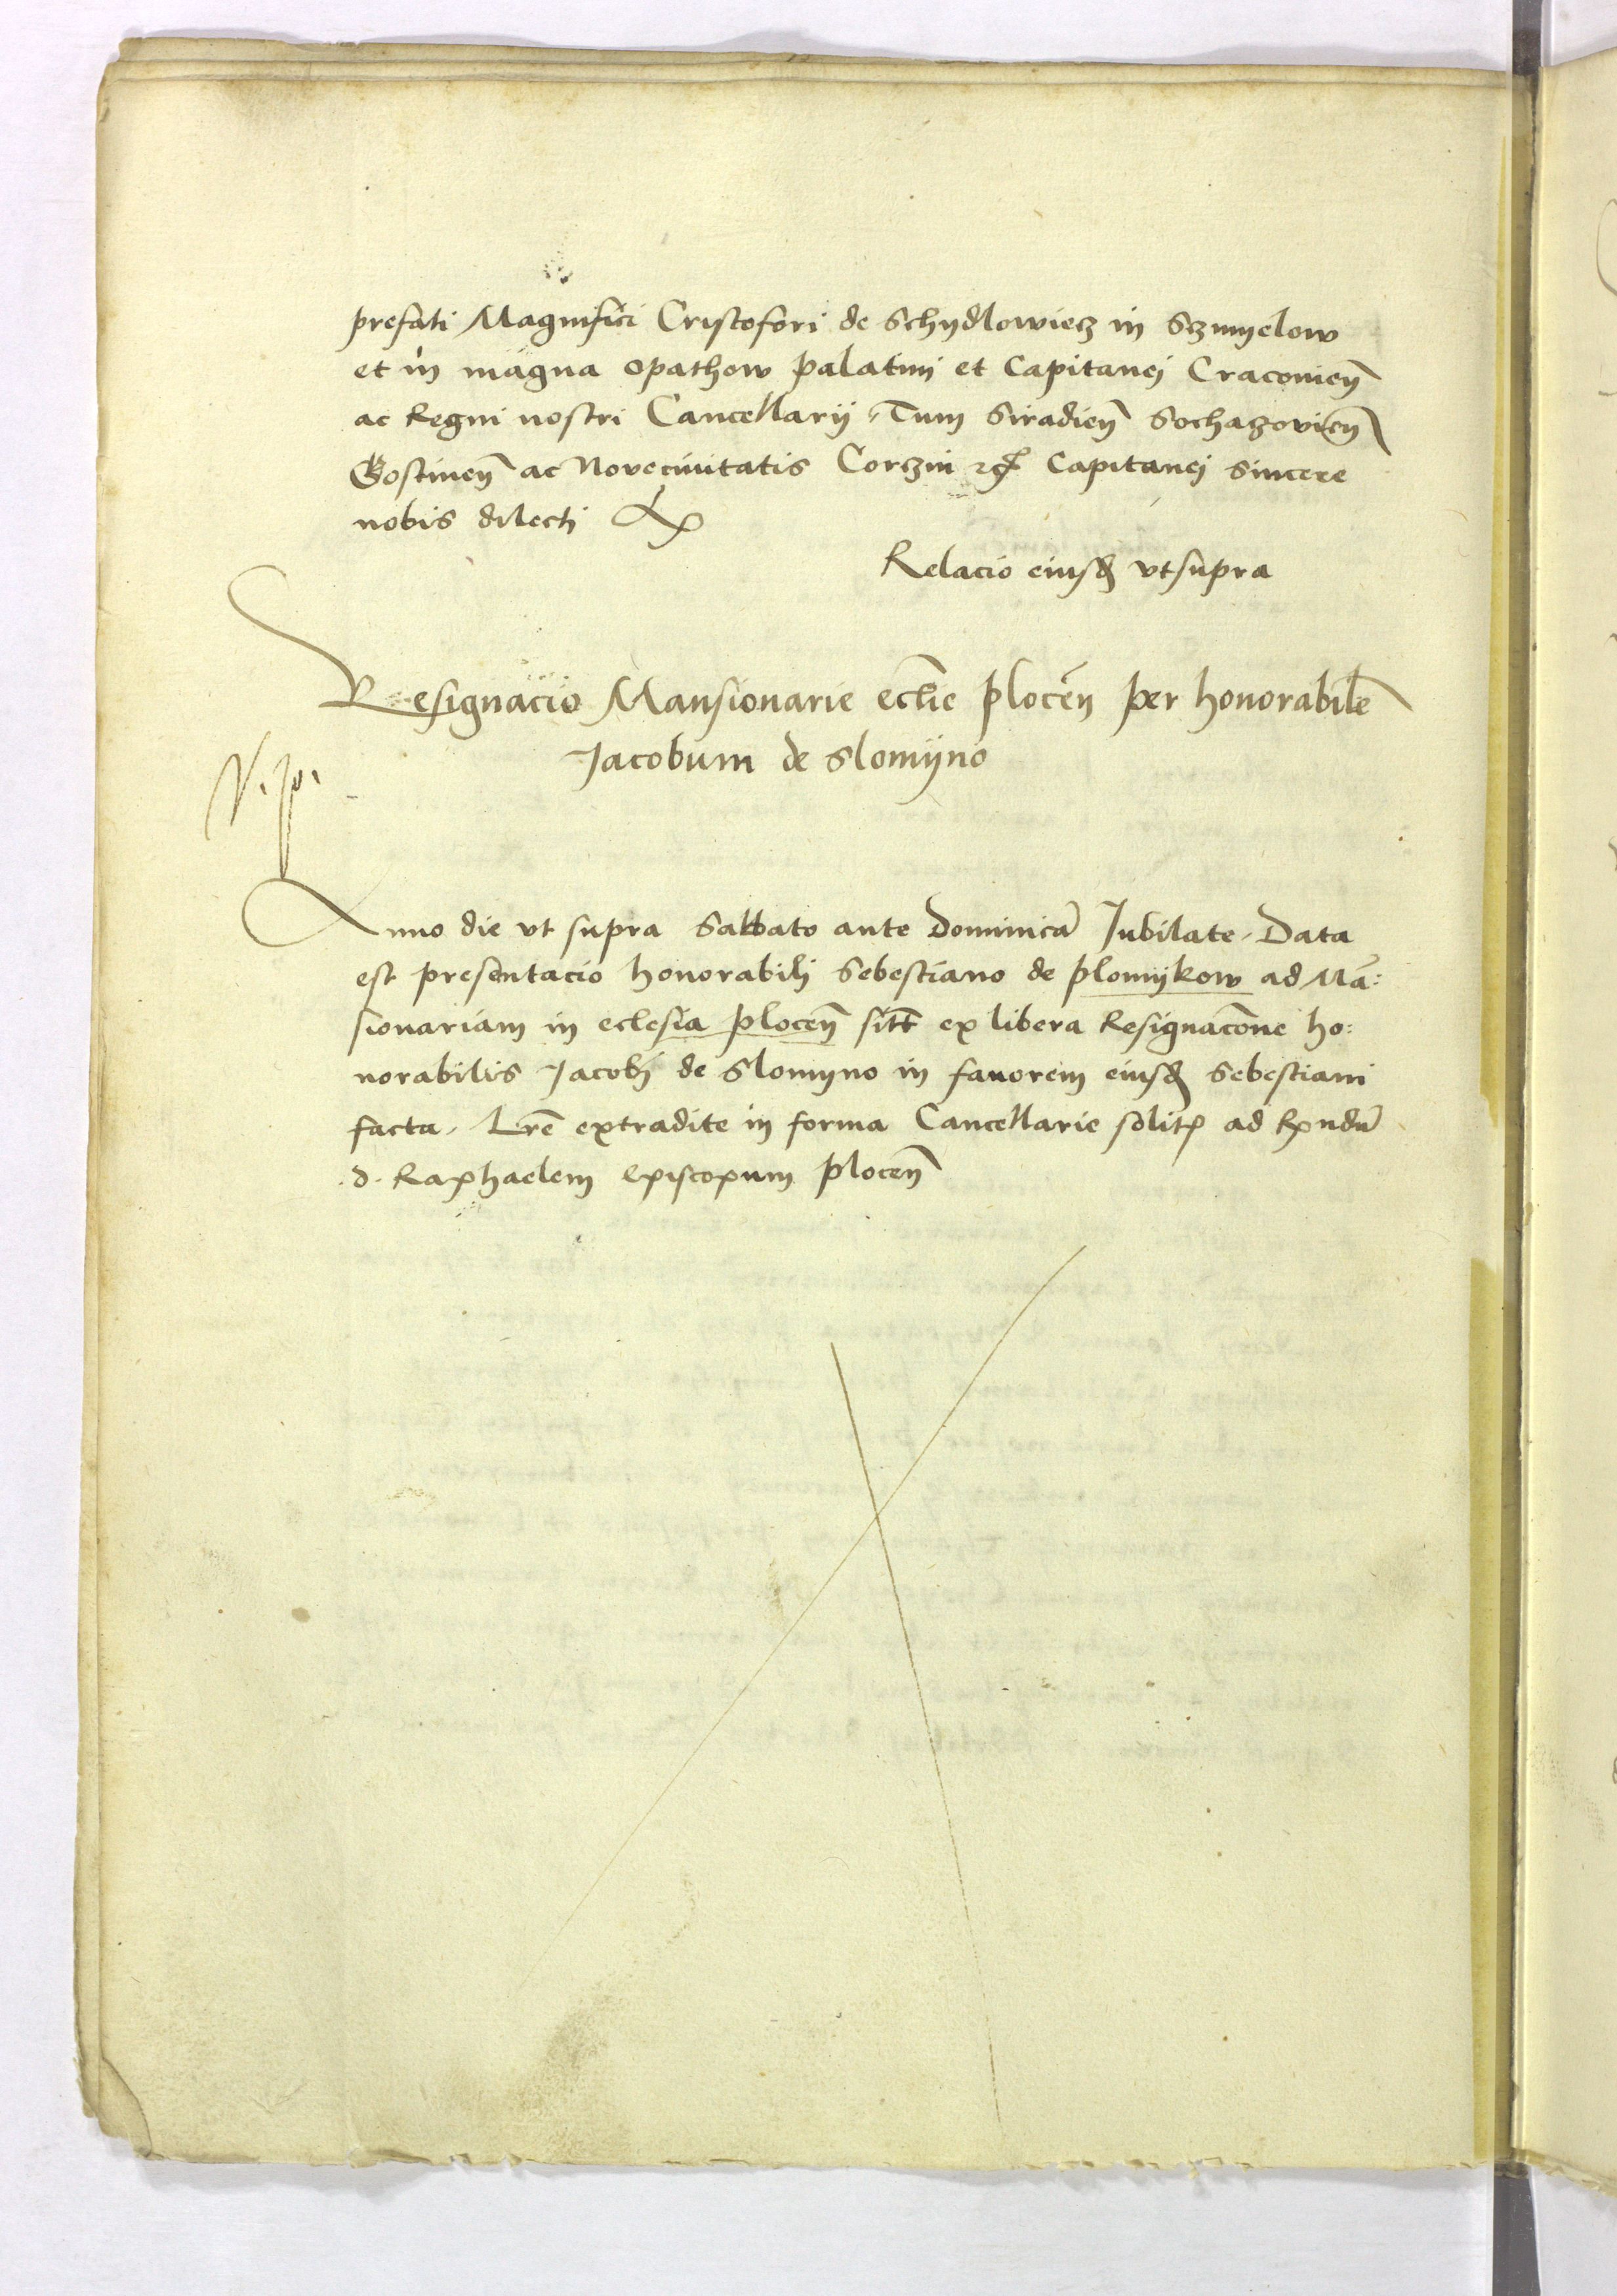 prefati Magnifici Cristofori de Schydlowiecz in Szmyelow
et in magna Opathow palatini et Capitanei Cracovien̄
ac Regni nostri Cancellarij Tum Siradien̄ Sochazovien̄
Gostinen̄ ac Novecivitatis Corczin Capitanei sincere
nobis dilecti
Relacio eiusd vt supra
Resignacio Mansionarie ecclīe plocen̄ per honorabilē
Jacobum de Slomyno
Anno die vt supra Sabbato ante Dominicā Jubilate. Data
est presentacio honorabili Sebestiano de plomykow ad Mā:
sionariam in eclesia plocen̄ ex libera Resignacōne ho:
norabilis Jacobi de Slomyno in fauorem eiusd Sebestiani
facta. Lrē extradite in forma Cancellarie solit ad Rndū
.d. Raphaelem Episcopum plocen̄